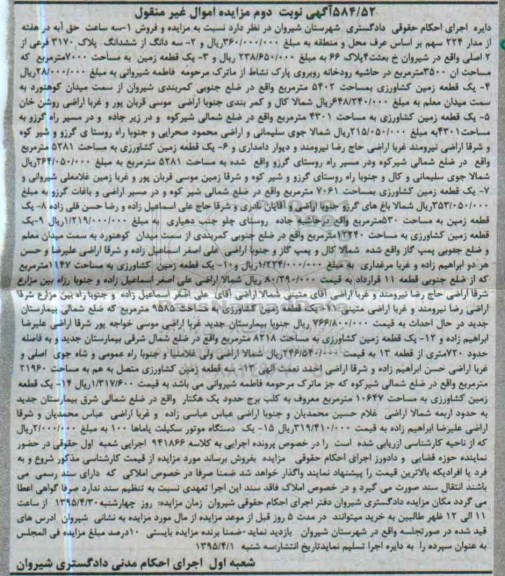 ۵۸۴/۵۲آگهی نوبت دوم مزایده اموال غیر منقول
دایره اجرای احکام حقوقی دادگستری شهرستان شیروان در نظر دارد نسبت به مزایده و فروش ۱-سه ساعت حق آبه در هفته
از مدار ۲۲۴ سهم بر اساس عرف محل و منطقه به مبلغ ۳۶۰/۰۰۰/۰۰۰ریال و ۲- سه دانگ از ششدانگ پلاک ۳۱۷۰ فرعی از
۲ اصلی واقع در شیروان خ بعثت۴پلاک ۶۶ به مبلغ ۲۳۸/۶۵۰/۰۰۰ ریال و ۳- یک قطعه زمین به مساحت ۷۰۰۰مترمربع که
مساحت ان ۳۵۰۰مترمربع در حاشیه رودخانه روبروی پارک نشاط از ماترک مرحومه فاطمه شیروانی به مبلغ ۲۸/۰۰۰/۰۰۰ریال
۴- یک قطعه زمین کشاورزی بمساحت ۵۴۰۲ مترمربع واقع در ضلع جنوبی کمربندی شیروان از سمت میدان کوهنورد به
سمت میدان معلم به مبلغ ۶۴۸/۲۴۰/۰۰۰ریال شمالا کال و کمر بندی جنوبا اراضی موسی قربان پور و غربا اراضی روشن خان
۵- یک قطعه زمین کشاورزی به مساحت ۴۳۰۱ مترمربع واقع در ضلع شمالی شیرکوه و در زیر جاده و در مسیر راه گرزو به
مساحت۴۳۰۱به مبلغ ۲۱۵/۰۵۰/۰۰۰ریال شمالا جوی سلیمانی و اراضی محمود صحرایی و جنوبا راه روستا ی گرزو و شیر کوه
و شرقا اراضی نیرومند غربا اراضی حاج رضا نیرومند و دیوار دامداری و ۶- یک قطعه زمین کشاورزی به مساحت ۵۲۸۱ مترمربع
واقع در ضلع شمالی شیرکوه ودر مسیر راه روستای گرزو واقع شده به مساحت ۵۲۸۱ مترمربع به مبلغ ۲۶۴/۰۵۰/۰۰۰ریال
شمالا جوی سلیمانی و کال و جنوبا راه روستای گرزو و شیر کوه و شرقا زمین موسی قربان پور و غربا زمین غلامعلی شیروانی و
۷- یک قطعه زمین کشاورزی بمساحت ۷۰۶۱ مترمربع واقع در ضلع شمالی شیر کوه و در مسیر اراضی و باغات گرزو به مبلغ
۳۵۳/۰۵۰/۰۰۰ریال شمالا باغ های گرزو جنوبا اراضی و آقایان نادری و شرقا حاج علی اسماعیل زاده و رضا حسن قلی زاده ۸- یک
قطعه زمین به مساحت ۵۳۰مترمربع واقع در حاشیه جاده روستای چلو جنب دهیاری به مبلغ ۱/۲۱۹/۰۰۰/۰۰۰ریال ۹-یک
قطعه زمین کشاورزی به مساحت ۱۲۲۴۰مترمربع واقع در ضلع جنوبی کمربندی از سمت میدان کوهنورد به سمت میدان معلم
و ضلع جنوبی پمپ گاز واقع شده شمالا کال و پمپ گاز و جنوبا اراضی علی اصغر اسماعیل زاده و شرقا اراضی علیرضا و حسن
هر دو ابراهیم زاده و غربا مرغداری به مبلغ ۱/۲۲۴/۰۰۰/۰۰۰ریال و۱۰- یک قطعه زمین کشاورزی به مساحت ۱۱۴۷مترمربع
که از ضلع جنوبی قطعه ۱۱ قرارداد به قیمت ۸۰/۲۹۰/۰۰۰ ریال شمالا اراضی علی اصغر اسماعیل زاده و جنوبا رزاه بین مزارع
شرقا اراضی حاج رضا نیرومند و غربا اراضی آقای متینی شمالا اراضی آقای علی اصغر اسماعیل زاده و جنوبا راه بین مزارع شرقا
اراضی رضا نیرومند و غربا اراضی متینی ۱۱-یک قطعه زمین کشاورزی به مساحت ۹۵۸۵ مترمربع که ضلع شمالی بیمارستان
جدید در حال احداث به قیمت ۷۶۶/۸۰۰/۰۰۰ ریال جنوبا بیمارستان جدید غربا اراضی موسی خواجه پور شرقا اراضی علیرضا
ابراهیم زاده و ۱۲- یک قطعه زمین کشاورزی به مساحت ۸۲۱۸ مترمربع واقع در ضلع شمال شرقی بیمارستان جدید و به فاصله
حدود ۷۲۰متری از قطعه ۱۳ به قیمت ۲۴۶/۵۴۰/۰۰۰ریال شمالا اراضی ولی غلامنیا و جنوبا راه عمومی و شاه جوی اصلی و
غربا اراضی حسن ابراهیم زاده و شرقا اراضی احمد نعمت الهی ۱۳- یک قطعه زمین کشاورزی متصل به هم به مساحت ۲۱۹۶۰
مترمربع واقع در ضلع شمالی شیرکوه که جز ماترک مرحومه فاطمه شیروانی می باشد به قیمت ۱/۳۱۷/۶۰۰ ریال ۱۴- یک قطعه
زمین کشاورزی به مساحت ۱۰۶۴۷ مترمربع معروف به کلب برج حدود یک هکتار واقع در ضلع شمالی شرق بیمارستان جدید
به حدود اربعه شمالا اراضی غلام حسین محمدیان و جنوبا اراضی عباس عباسی زاده و غربا اراضی عباس محمدیان و شرقا
اراضی علیرضا ابراهیم زاده به قیمت ۳۱۹/۴۱۰/۰۰۰ریال ۱۵- یک دستگاه موتور سکیلت یاماها ۱۰۰ به مبلغ ۲/۰۰۰/۰۰۰ریال
که از ناحیه کارشناسی ارزیابی شده است را در خصوص پرونده اجرایی به کلاسه ۹۴۱۸۶۶ اجرایی شعبه اول حقوقی در حضور
نماینده حوزه قضایی و دادورز اجرای احکام حقوقی مزایده بفروش برساند مورد مزایده از قیمت کارشناسی مذکور شروع و به
فرد یا افرادیکه بالاترین قیمت را پیشنهاد نمایند واگذار خواهد شد ضمنا صرفا در خصوص املاکی که دارای سند رسمی می
باشند انتقال سند صورت می گیرد و در خصوص املاک فاقد سند این اجرا تعهدی نسبت به تنظیم سند ندارد صرفا گواهی اعطا
می گردد مکان مزایده دادگستری شیروان دفتر اجرای احکام حقوقی شیروان زمان مزایده: روز چهارشنبه۱۳۹۵/۴/۳۰ از ساعت
۱۱ الی ۱۲ ظهر طالبین به خرید میتوانند در مدت ۵ روز قبل از موعد مزایده از مال مورد مزایده به نشانی شیروان ادرس های
قید شده در صورتجلسه واقع در شهرستان شیروان بازدید نماید-ضمنا برنده مزایده بایستی ۱۰درصد مبلغ مزایده فی المجلس
به عنوان سپرده را به دایره اجرا تسلیم نمایدتاریخ انتشارسه شنبه ۱۳۹۵/۴/۱
شعبه اول اجرای احکام مدنی دادگستری شیروان